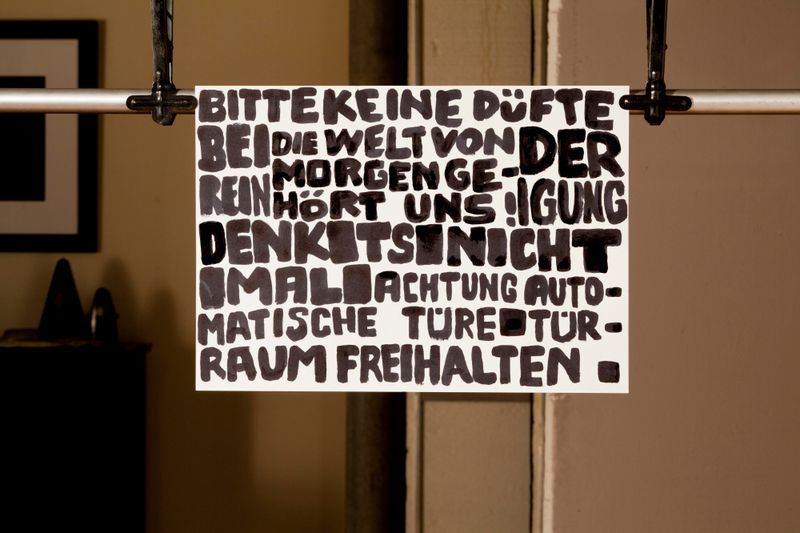 BITTE KEINE DÜFTE
BEI DIE WELT VON DER
MORGEN GE-
REIN HÖRT UNS !IGUNG
DENK TS NICHT
MAL ACHTUNG AUTO-
MATISCHE TÜRE TÜR-
RAUM FREIHALTEN